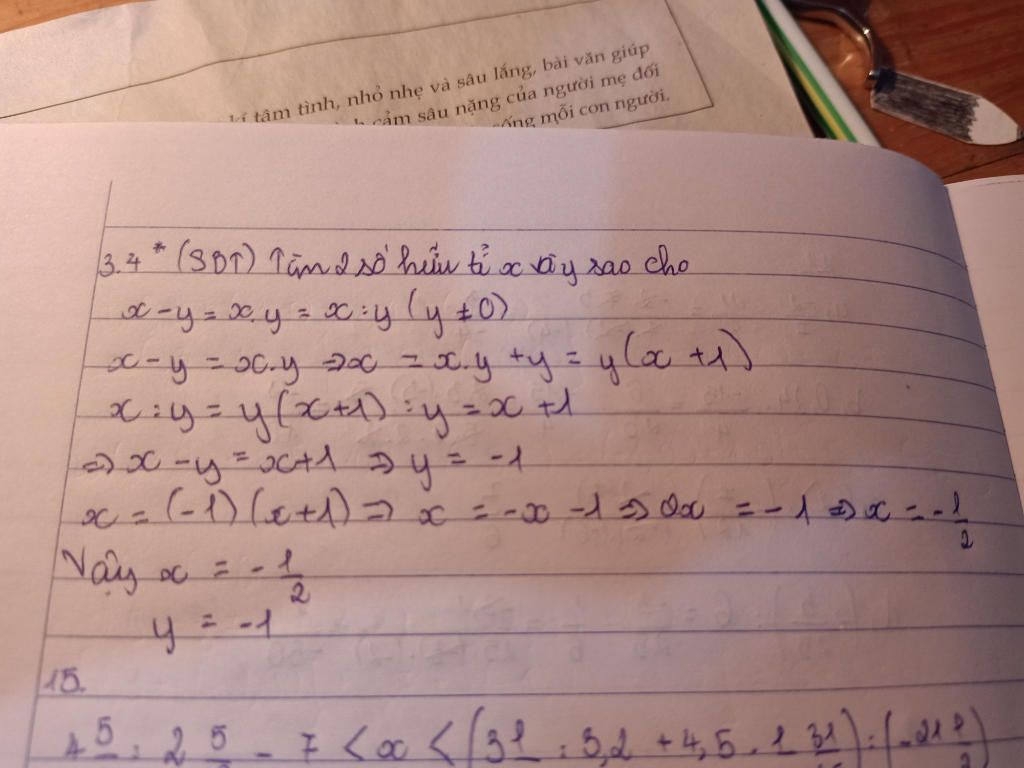 tâm tình, nhỏ nhẹ và sâu lắng, bài văn giúp
cảm sâu nặng của người mẹ đối
sống mỗi con người.
3.4* (SBT) Tìm 2 số hữu tỉ x và y sao cho
x - y = x.y = x : y (y ≠ 0)
x - y = x.y ⇒ x = x.y + y = y(x + 1)
x : y = y(x+1) : y = x + 1
⇒ x - y = x+1 ⇒ y = -1
x = (-1)(x+1) ⇒ x = -x - 1 ⇒ 2x = -1 ⇒ x = -1/2
Vậy x = -1/2
y = -1
15.